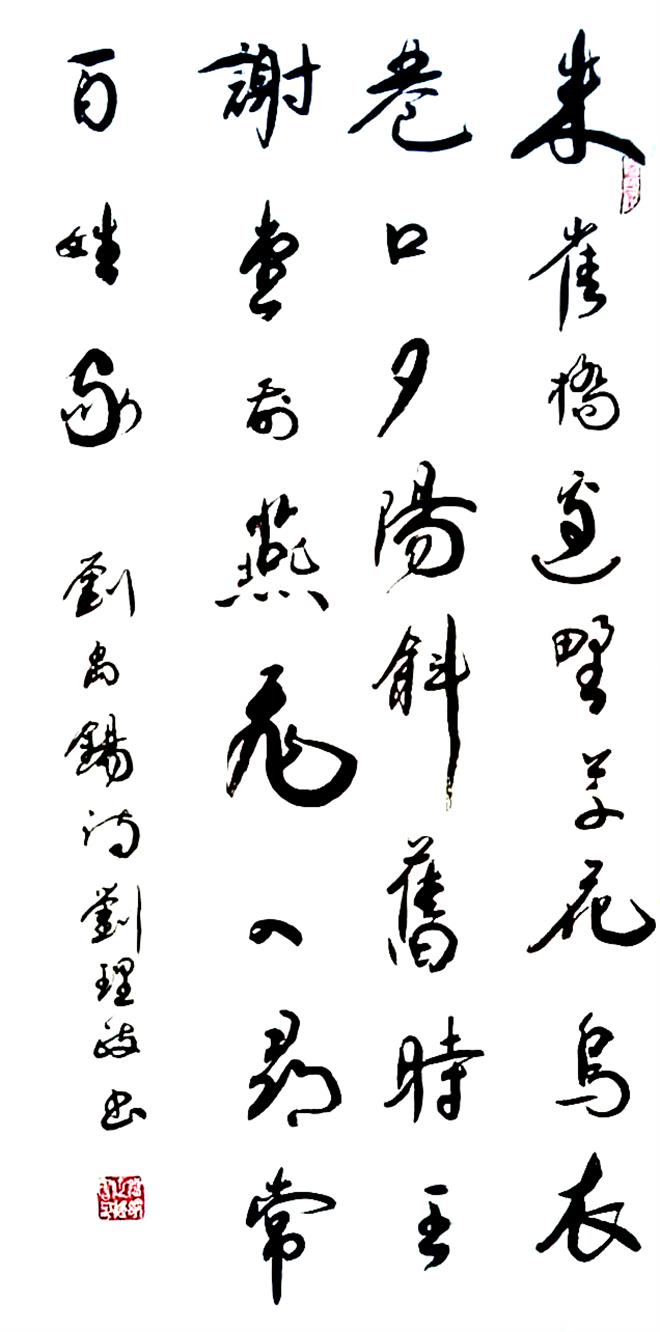 朱雀橋邊野草花烏衣
巷口夕陽斜舊時王
謝堂前燕飛入尋常
百姓家 劉禹錫詩劉理書